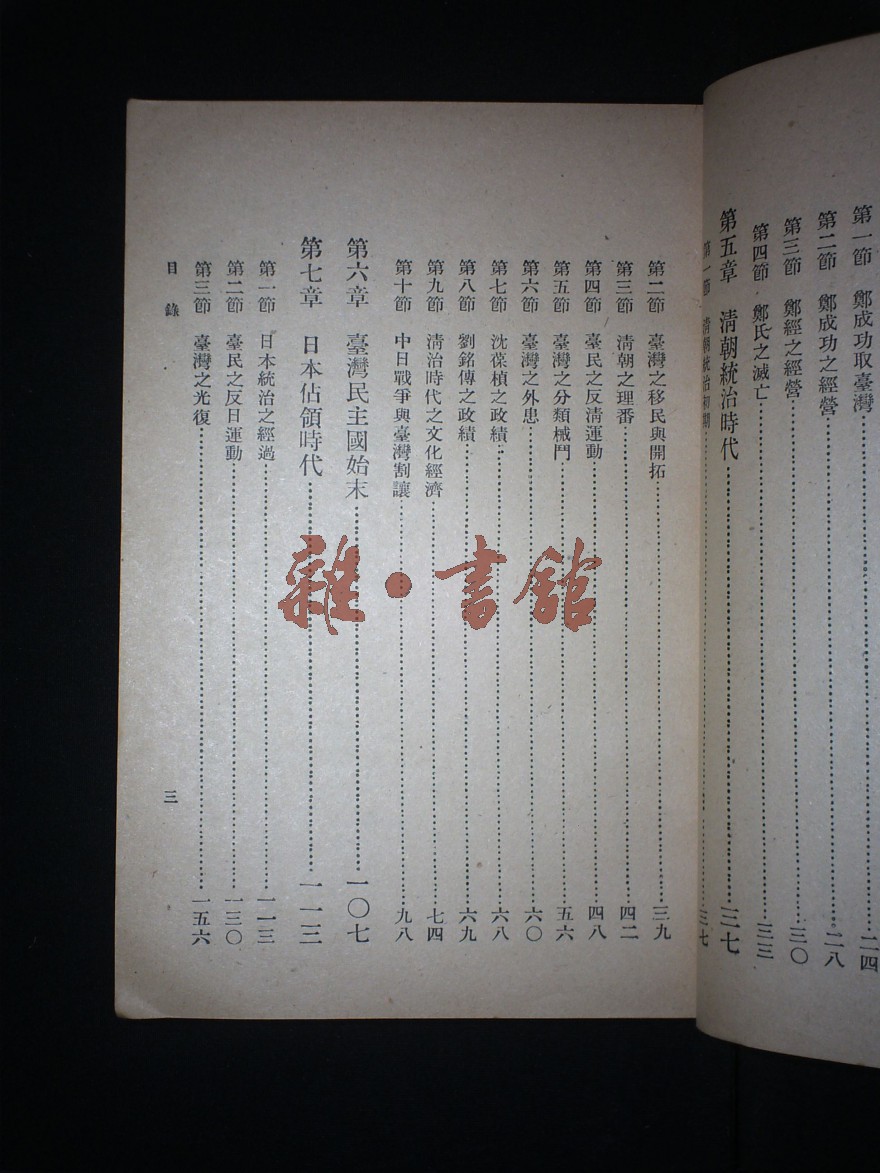 第一節 鄭成功取臺灣 二四
第二節 鄭成功之經營 二八
第三節 鄭經之經營 三〇
第四節 鄭氏之滅亡 三三
第五章 清朝統治時代 三七
第一節 清朝統治初期 三七
第二節 臺灣之移民與開拓 三九
第三節 清朝之理番 四二
第四節 臺民之反清運動 四八
第五節 臺灣之分類械鬥 五六
第六節 臺灣之外患 六〇
第七節 沈葆楨之政績 六八
第八節 劉銘傳之政績 六九
第九節 清治時代之文化經濟 七四
第十節 中日戰爭與臺灣割讓 九八
第六章 臺灣民主國始末 一〇七
第七章 日本佔領時代 一一三
第一節 日本統治之經過 一一三
第二節 臺民之反日運動 一三〇
第三節 臺灣之光復 一五六
目錄 三
雜·書館